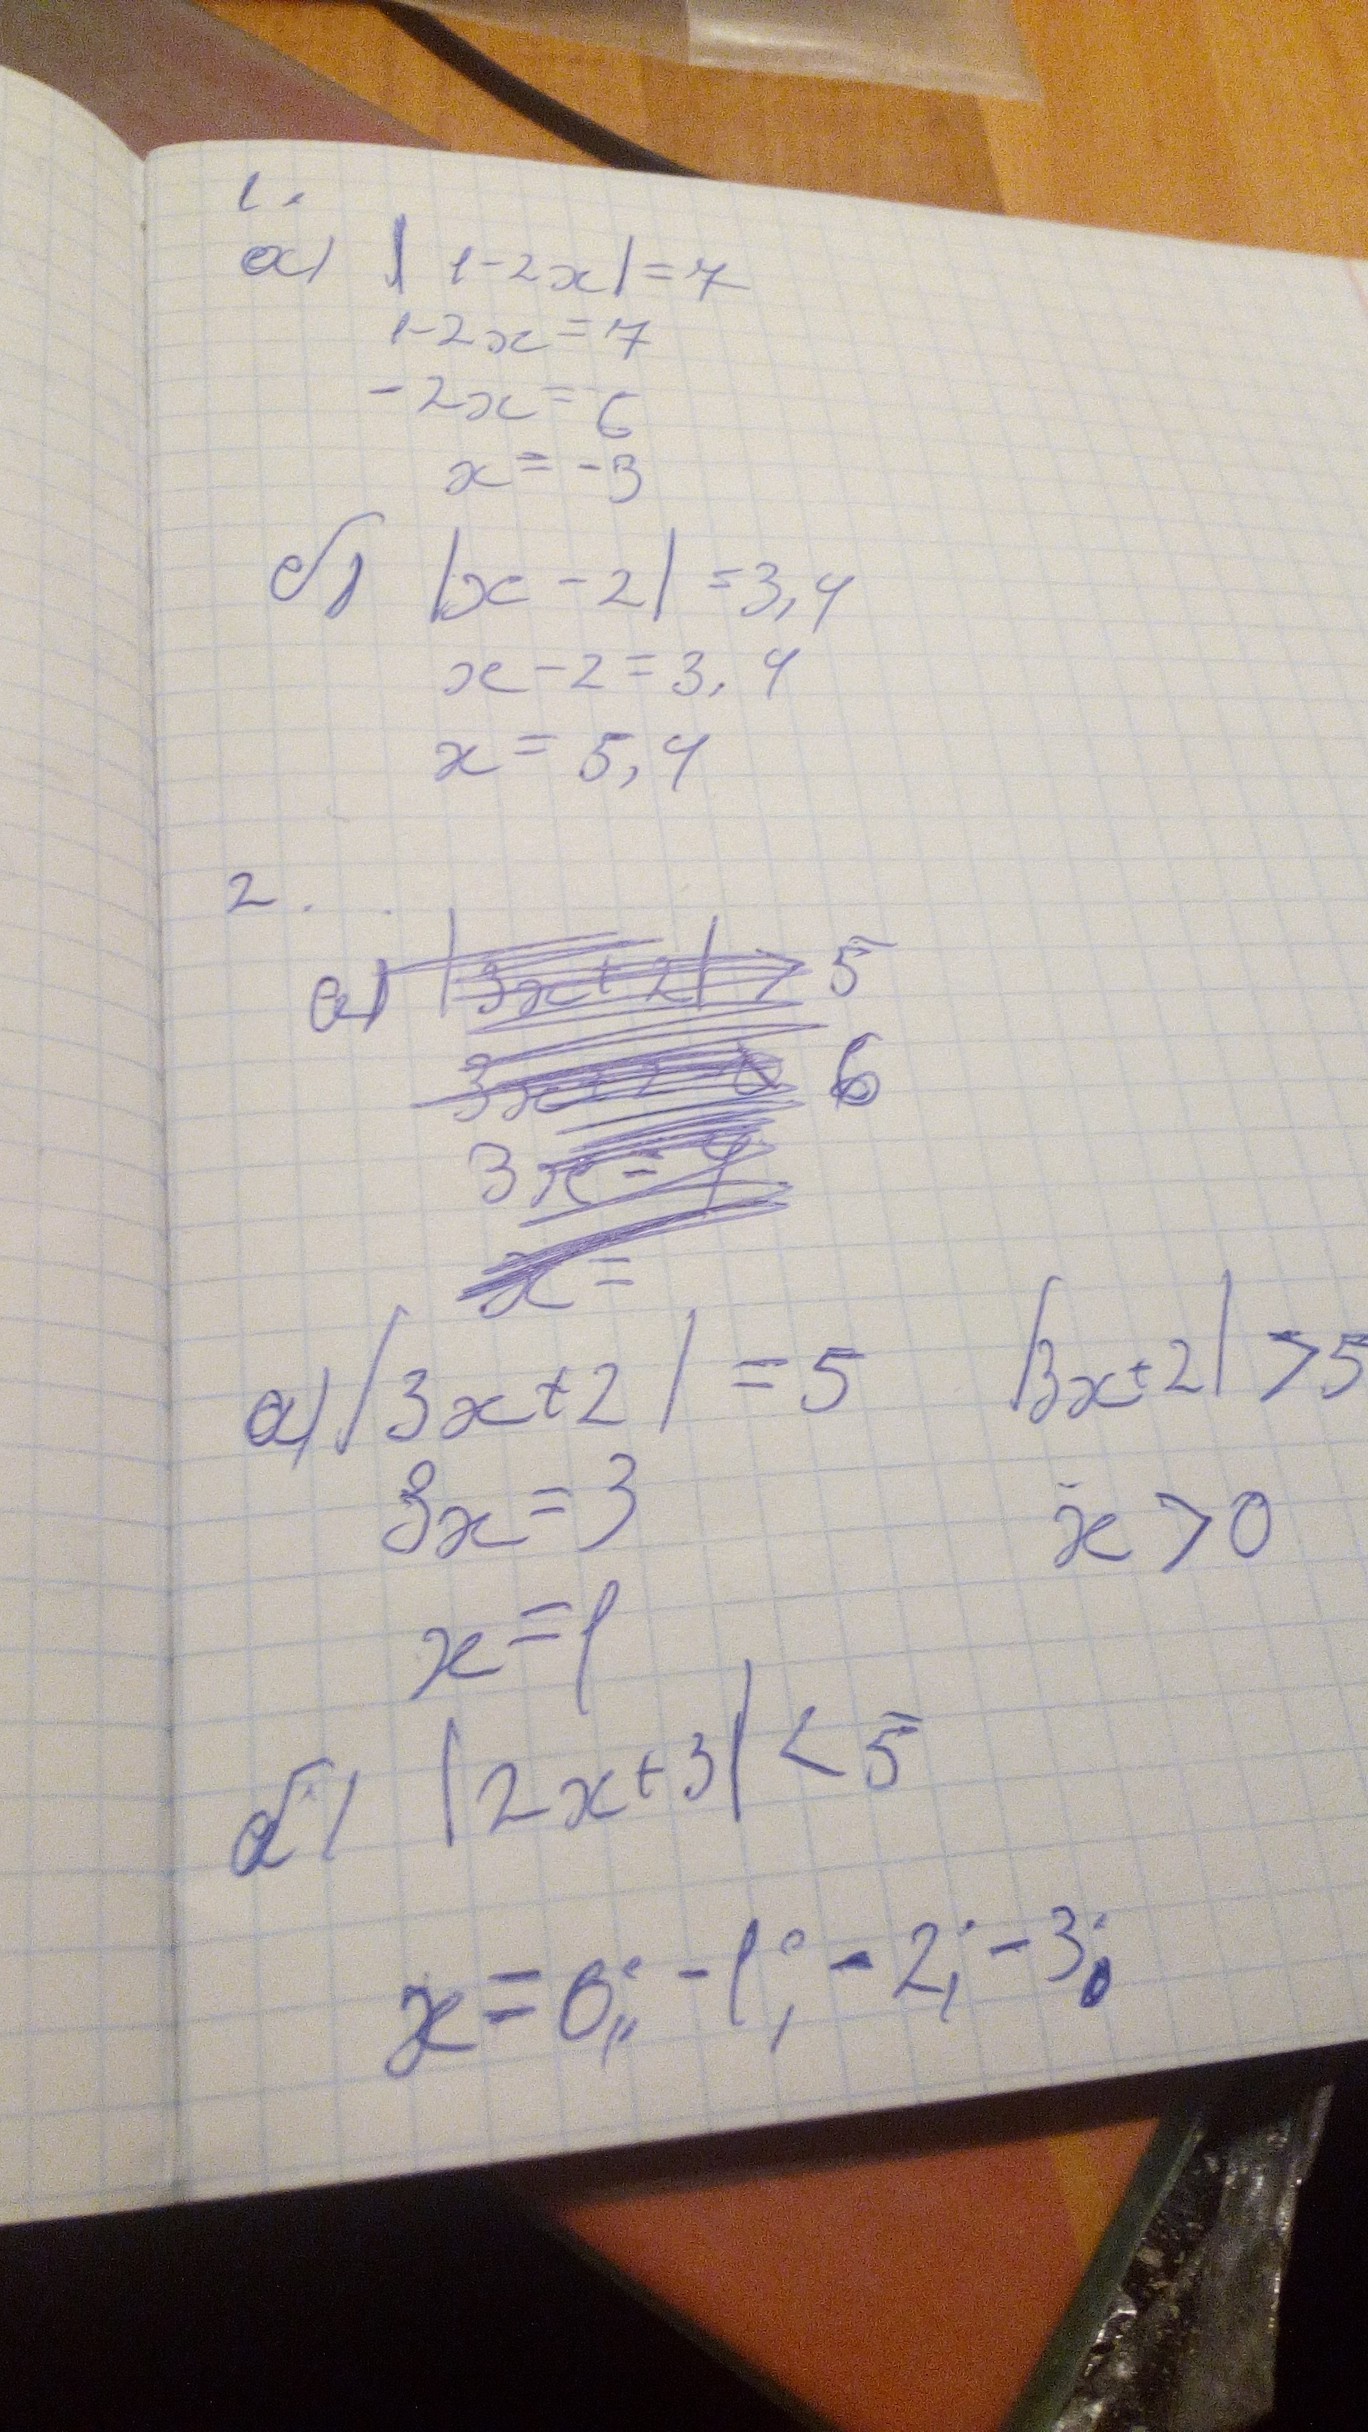 1.
а) |1-2x|=7
1-2x=7
-2x=6
x=-3
б) |x-2|=3,4
x-2=3,4
x=5,4
2.
а) |3x+2|>5
6
3x=4
x=
а) |3x+2|=5 |3x+2|>5
3x=3 x>0
x=1
б) |2x+3|<5
x=0; -1; -2; -3;